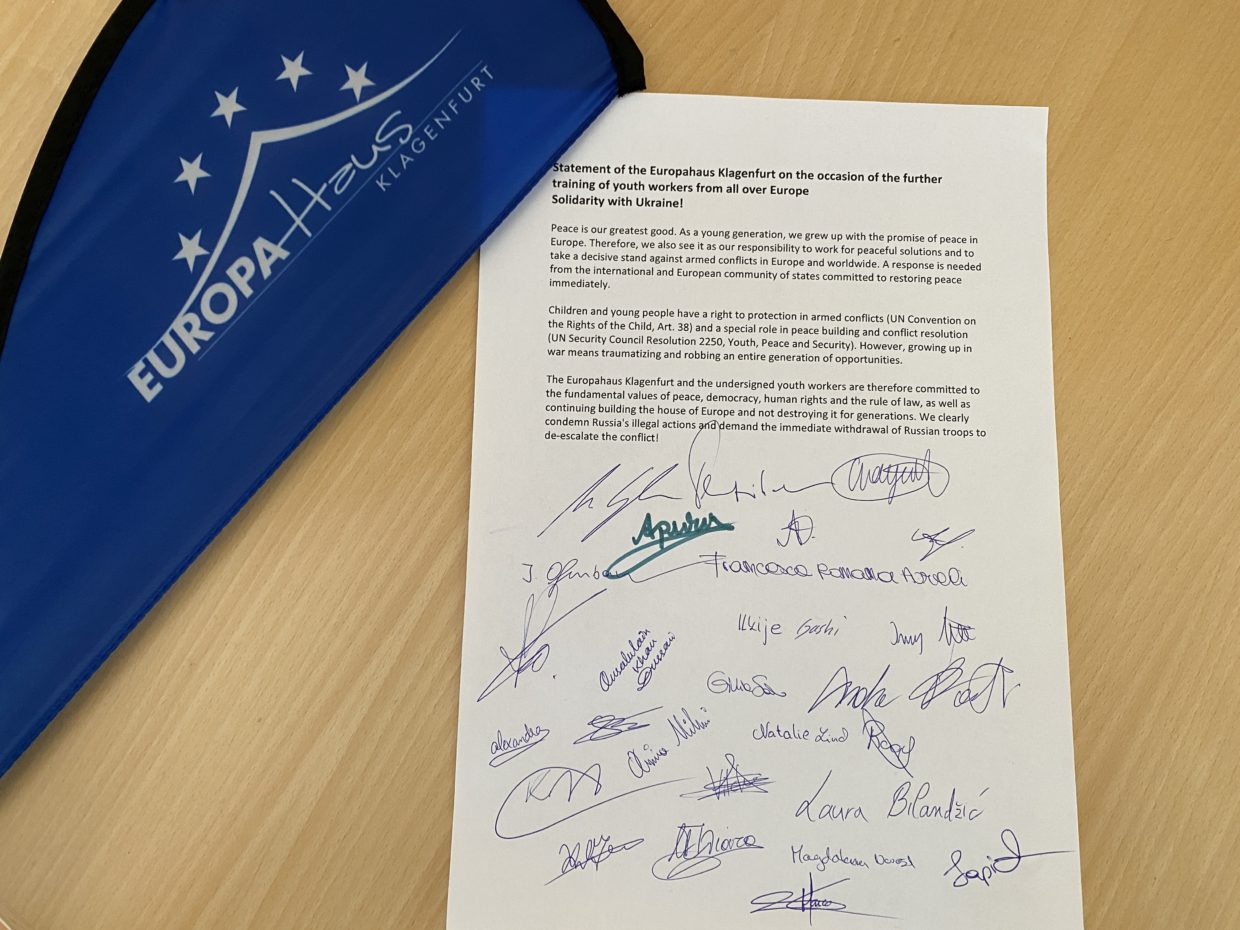 EUROPAHaus
KLAGENFURT
Statement of the Europahaus Klagenfurt on the occasion of the further
training of youth workers from all over Europe
Solidarity with Ukraine!
Peace is our greatest good. As a young generation, we grew up with the promise of peace in
Europe. Therefore, we also see it as our responsibility to work for peaceful solutions and to
take a decisive stand against armed conflicts in Europe and worldwide. A response is needed
from the international and European community of states committed to restoring peace
immediately.
Children and young people have a right to protection in armed conflicts (UN Convention on
the Rights of the Child, Art. 38) and a special role in peace building and conflict resolution
(UN Security Council Resolution 2250, Youth, Peace and Security). However, growing up in
war means traumatizing and robbing an entire generation of opportunities.
The Europahaus Klagenfurt and the undersigned youth workers are therefore committed to
the fundamental values of peace, democracy, human rights and the rule of law, as well as
continuing building the house of Europe and not destroying it for generations. We clearly
condemn Russia's illegal actions and demand the immediate withdrawal of Russian troops to
de-escalate the conflict!
J.
Francesca Romana
Gashi
Khan
alexandra
Natalie Lind
Laura Bilandžić